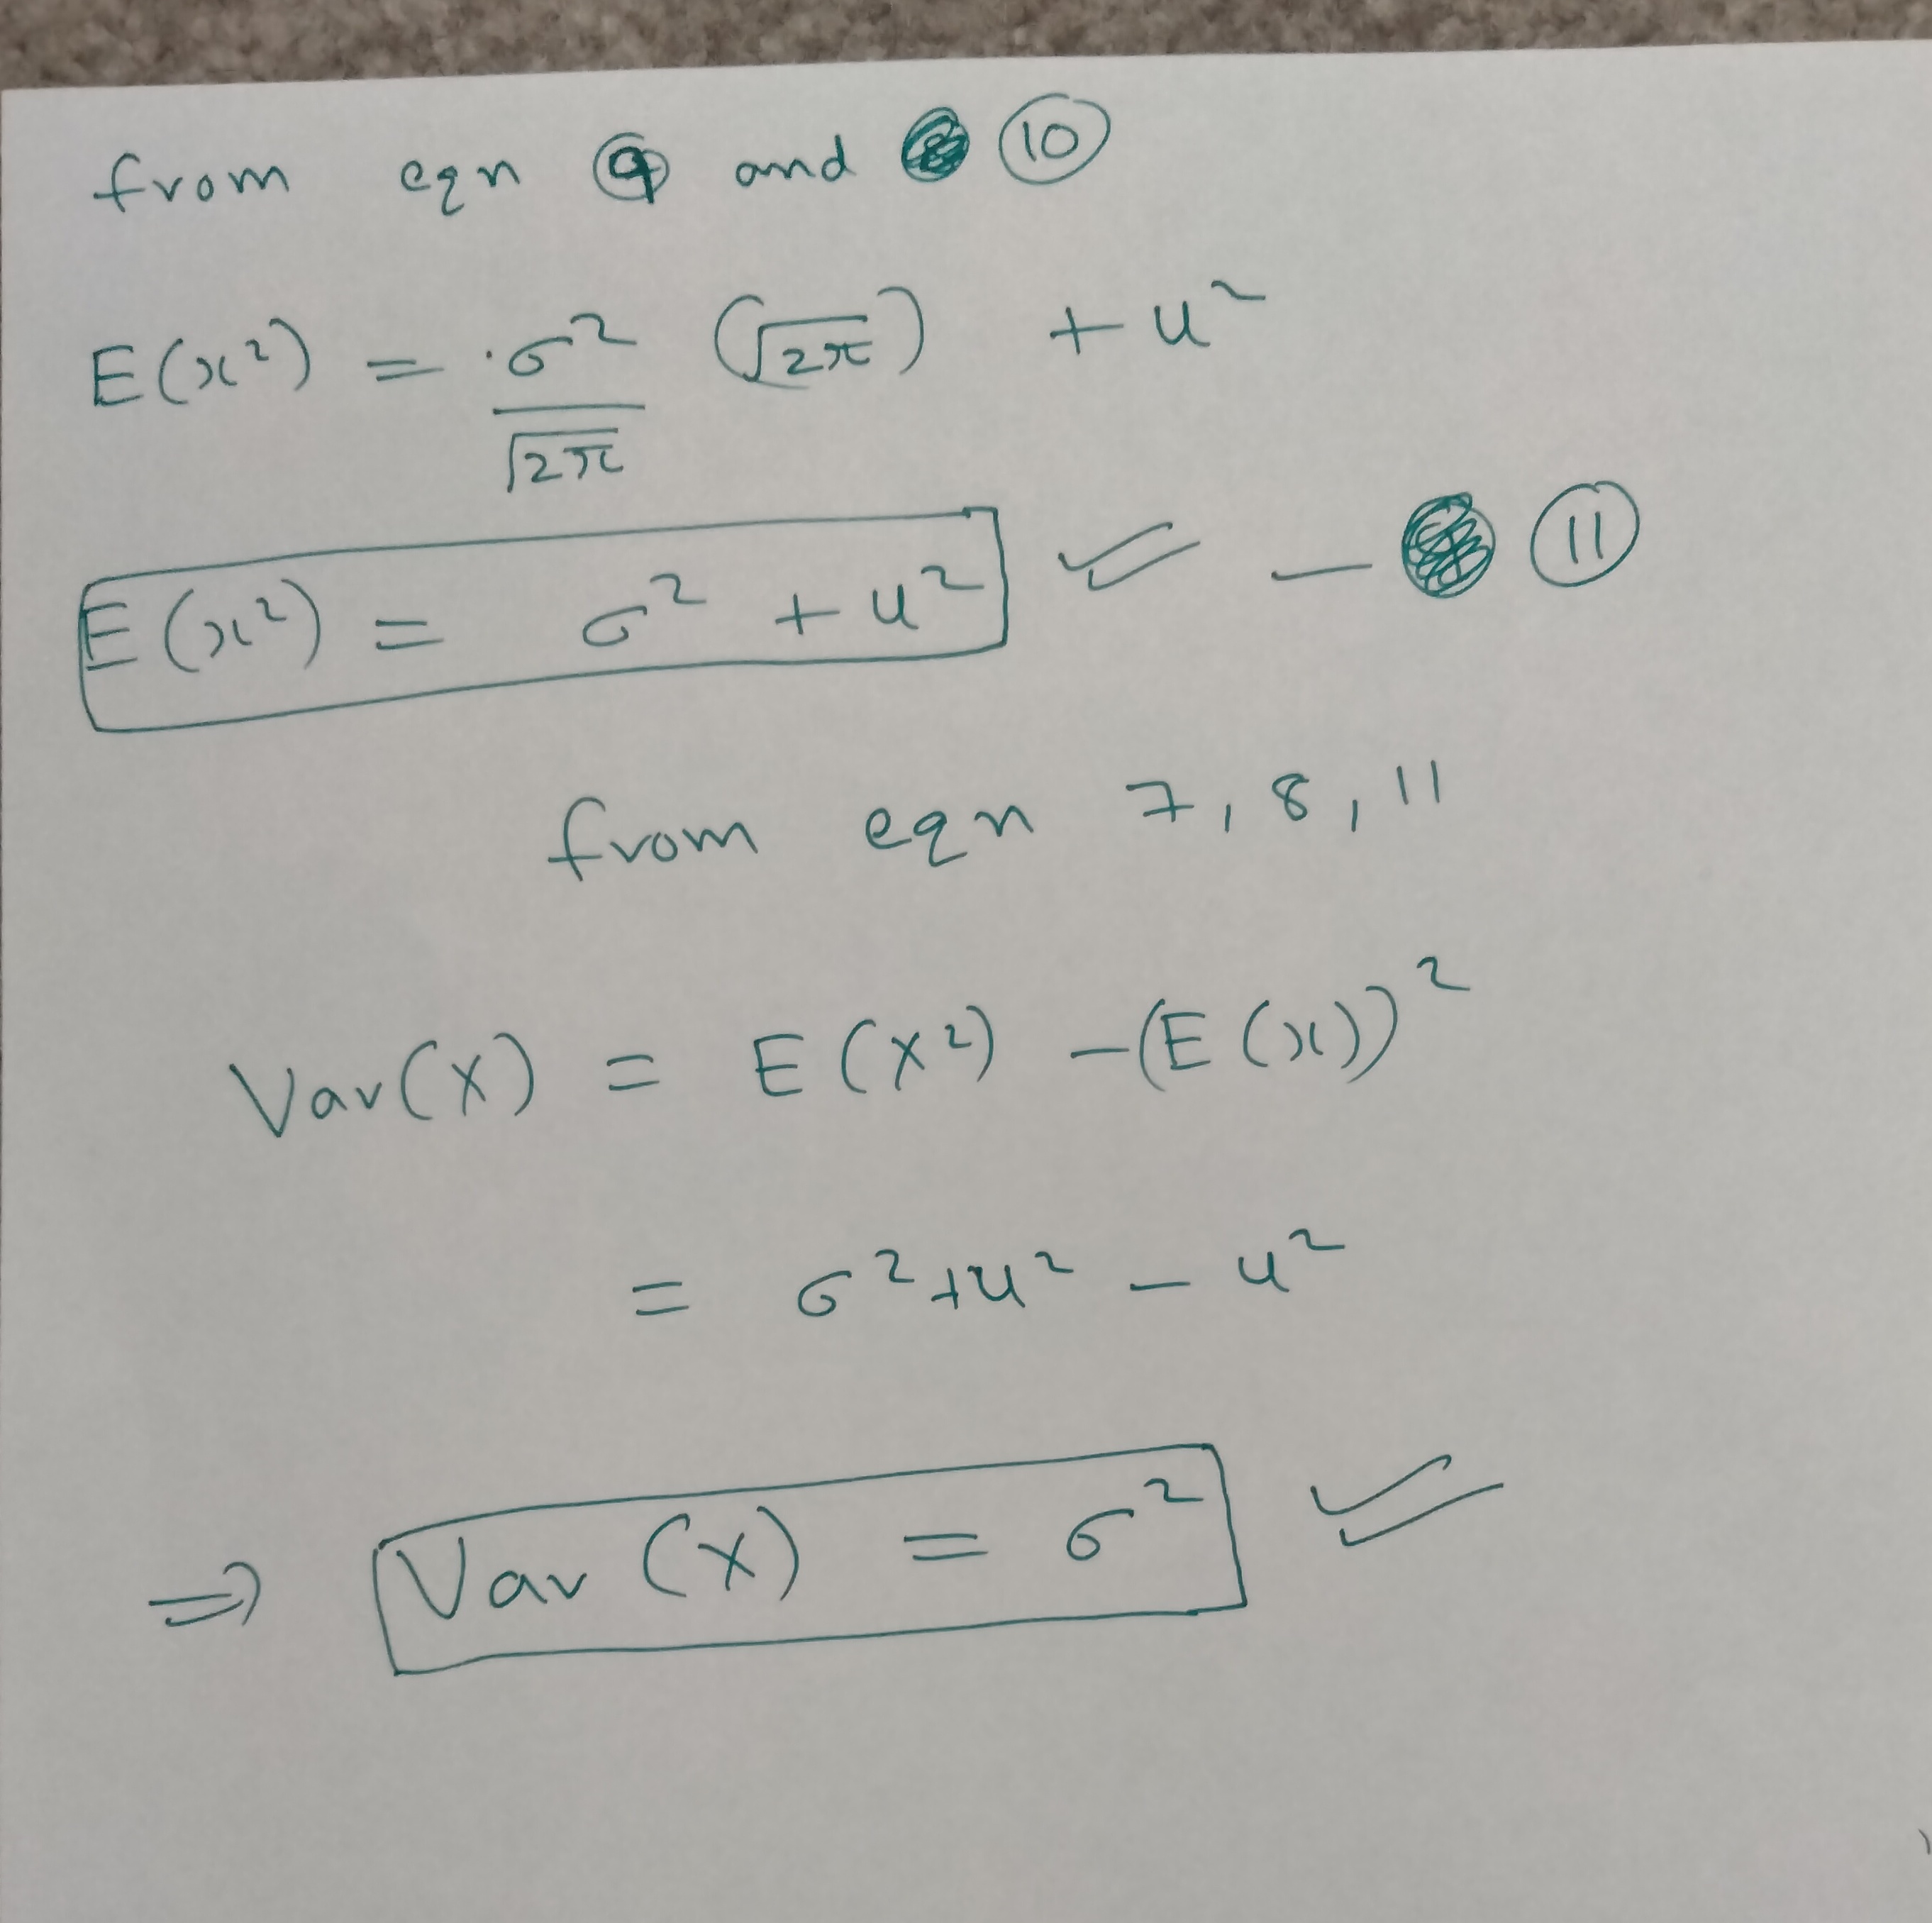 from eqn ⑨ and ⑩
E(x²) = σ²/√2π (√2π) + u²
E(x²) = σ² + u² — ⑪
from eqn 7, 8, 11
Var(X) = E(X²) - (E(x))²
= σ² + u² - u²
⇒ Var(X) = σ²